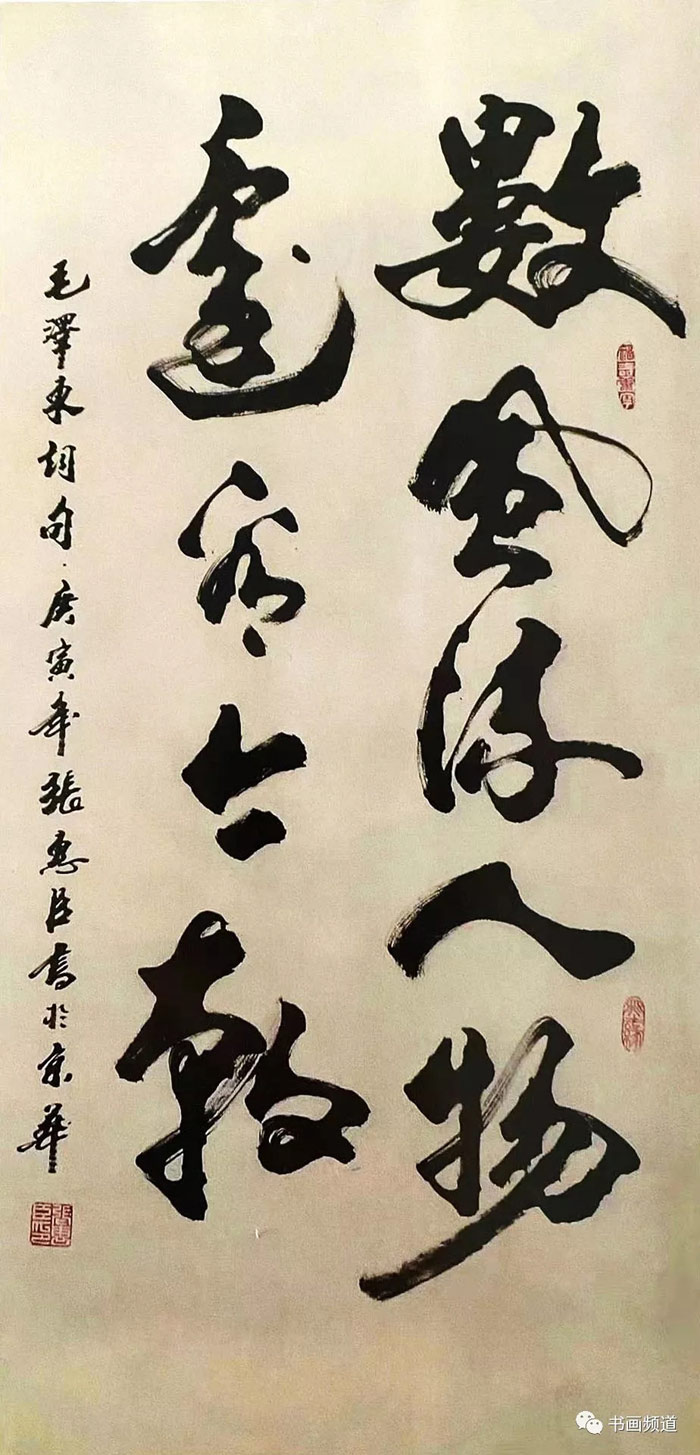 數風流人物
還看今朝
毛澤東詞句·庚寅年張惠臣書於京華
張惠臣印
书画频道